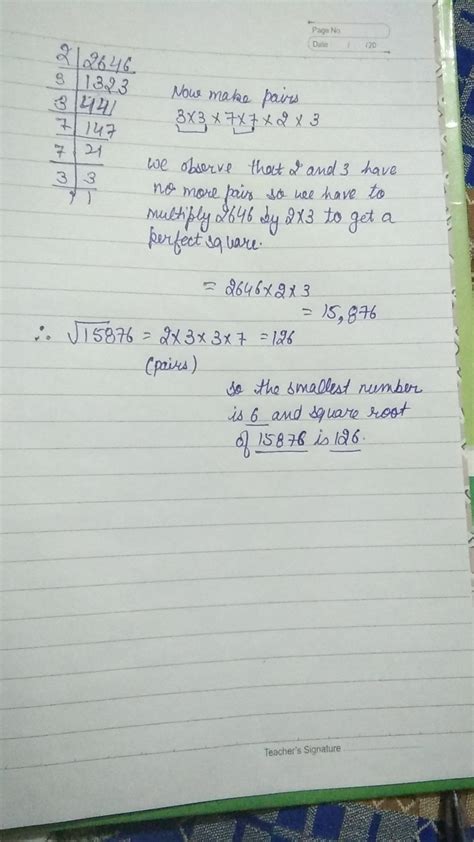 Page No
Date / /20
2 | 2646
3 | 1323
3 | 441
7 | 147
7 | 21
3 | 3
, 1
Now make pairs
3×3 × 7×7 × 2 × 3
we observe that 2 and 3 have
no more pair so we have to
multiply 2646 by 2×3 to get a
perfect square.
= 2646×2×3
= 15,876
∴ √15876 = 2×3×3×7 = 126
(pairs)
so the smallest number
is 6 and square root
of 15876 is 126.
Teacher's Signature